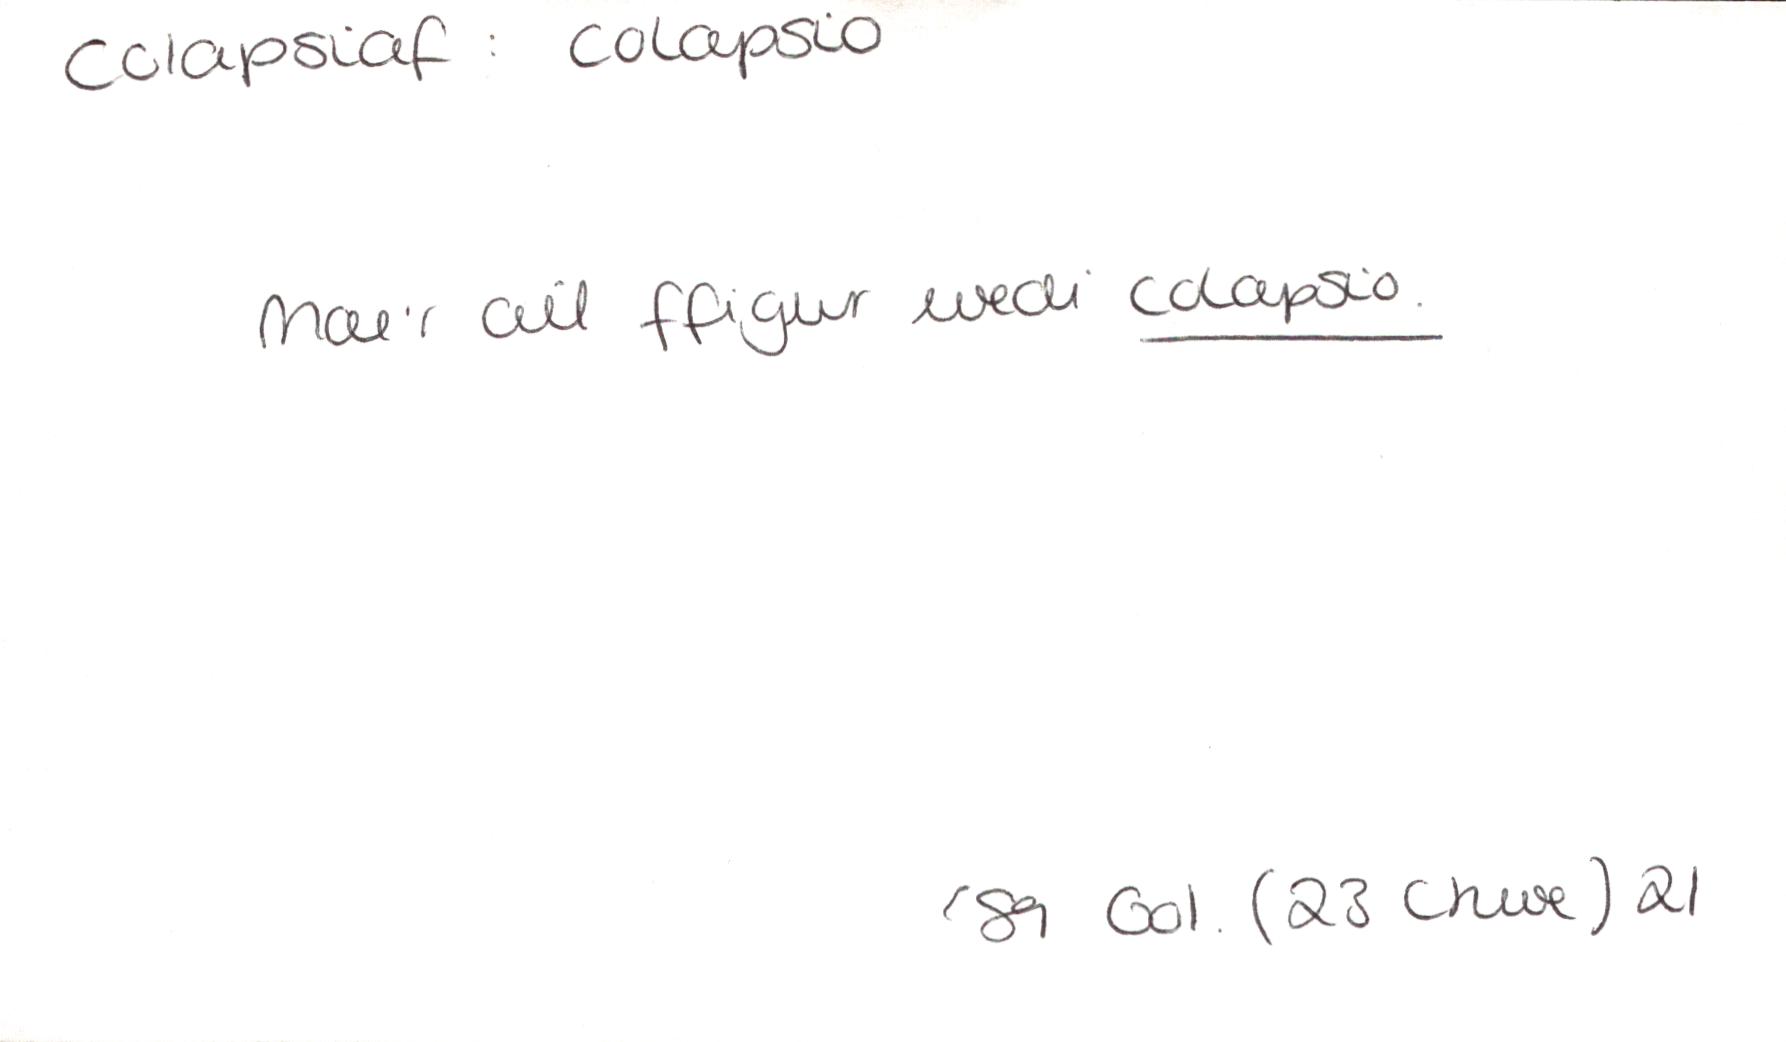 Colapsiaf : colapsio
Mae'r ail ffigur wedi colapsio.
'89 Gol. (23 Chwe) 21